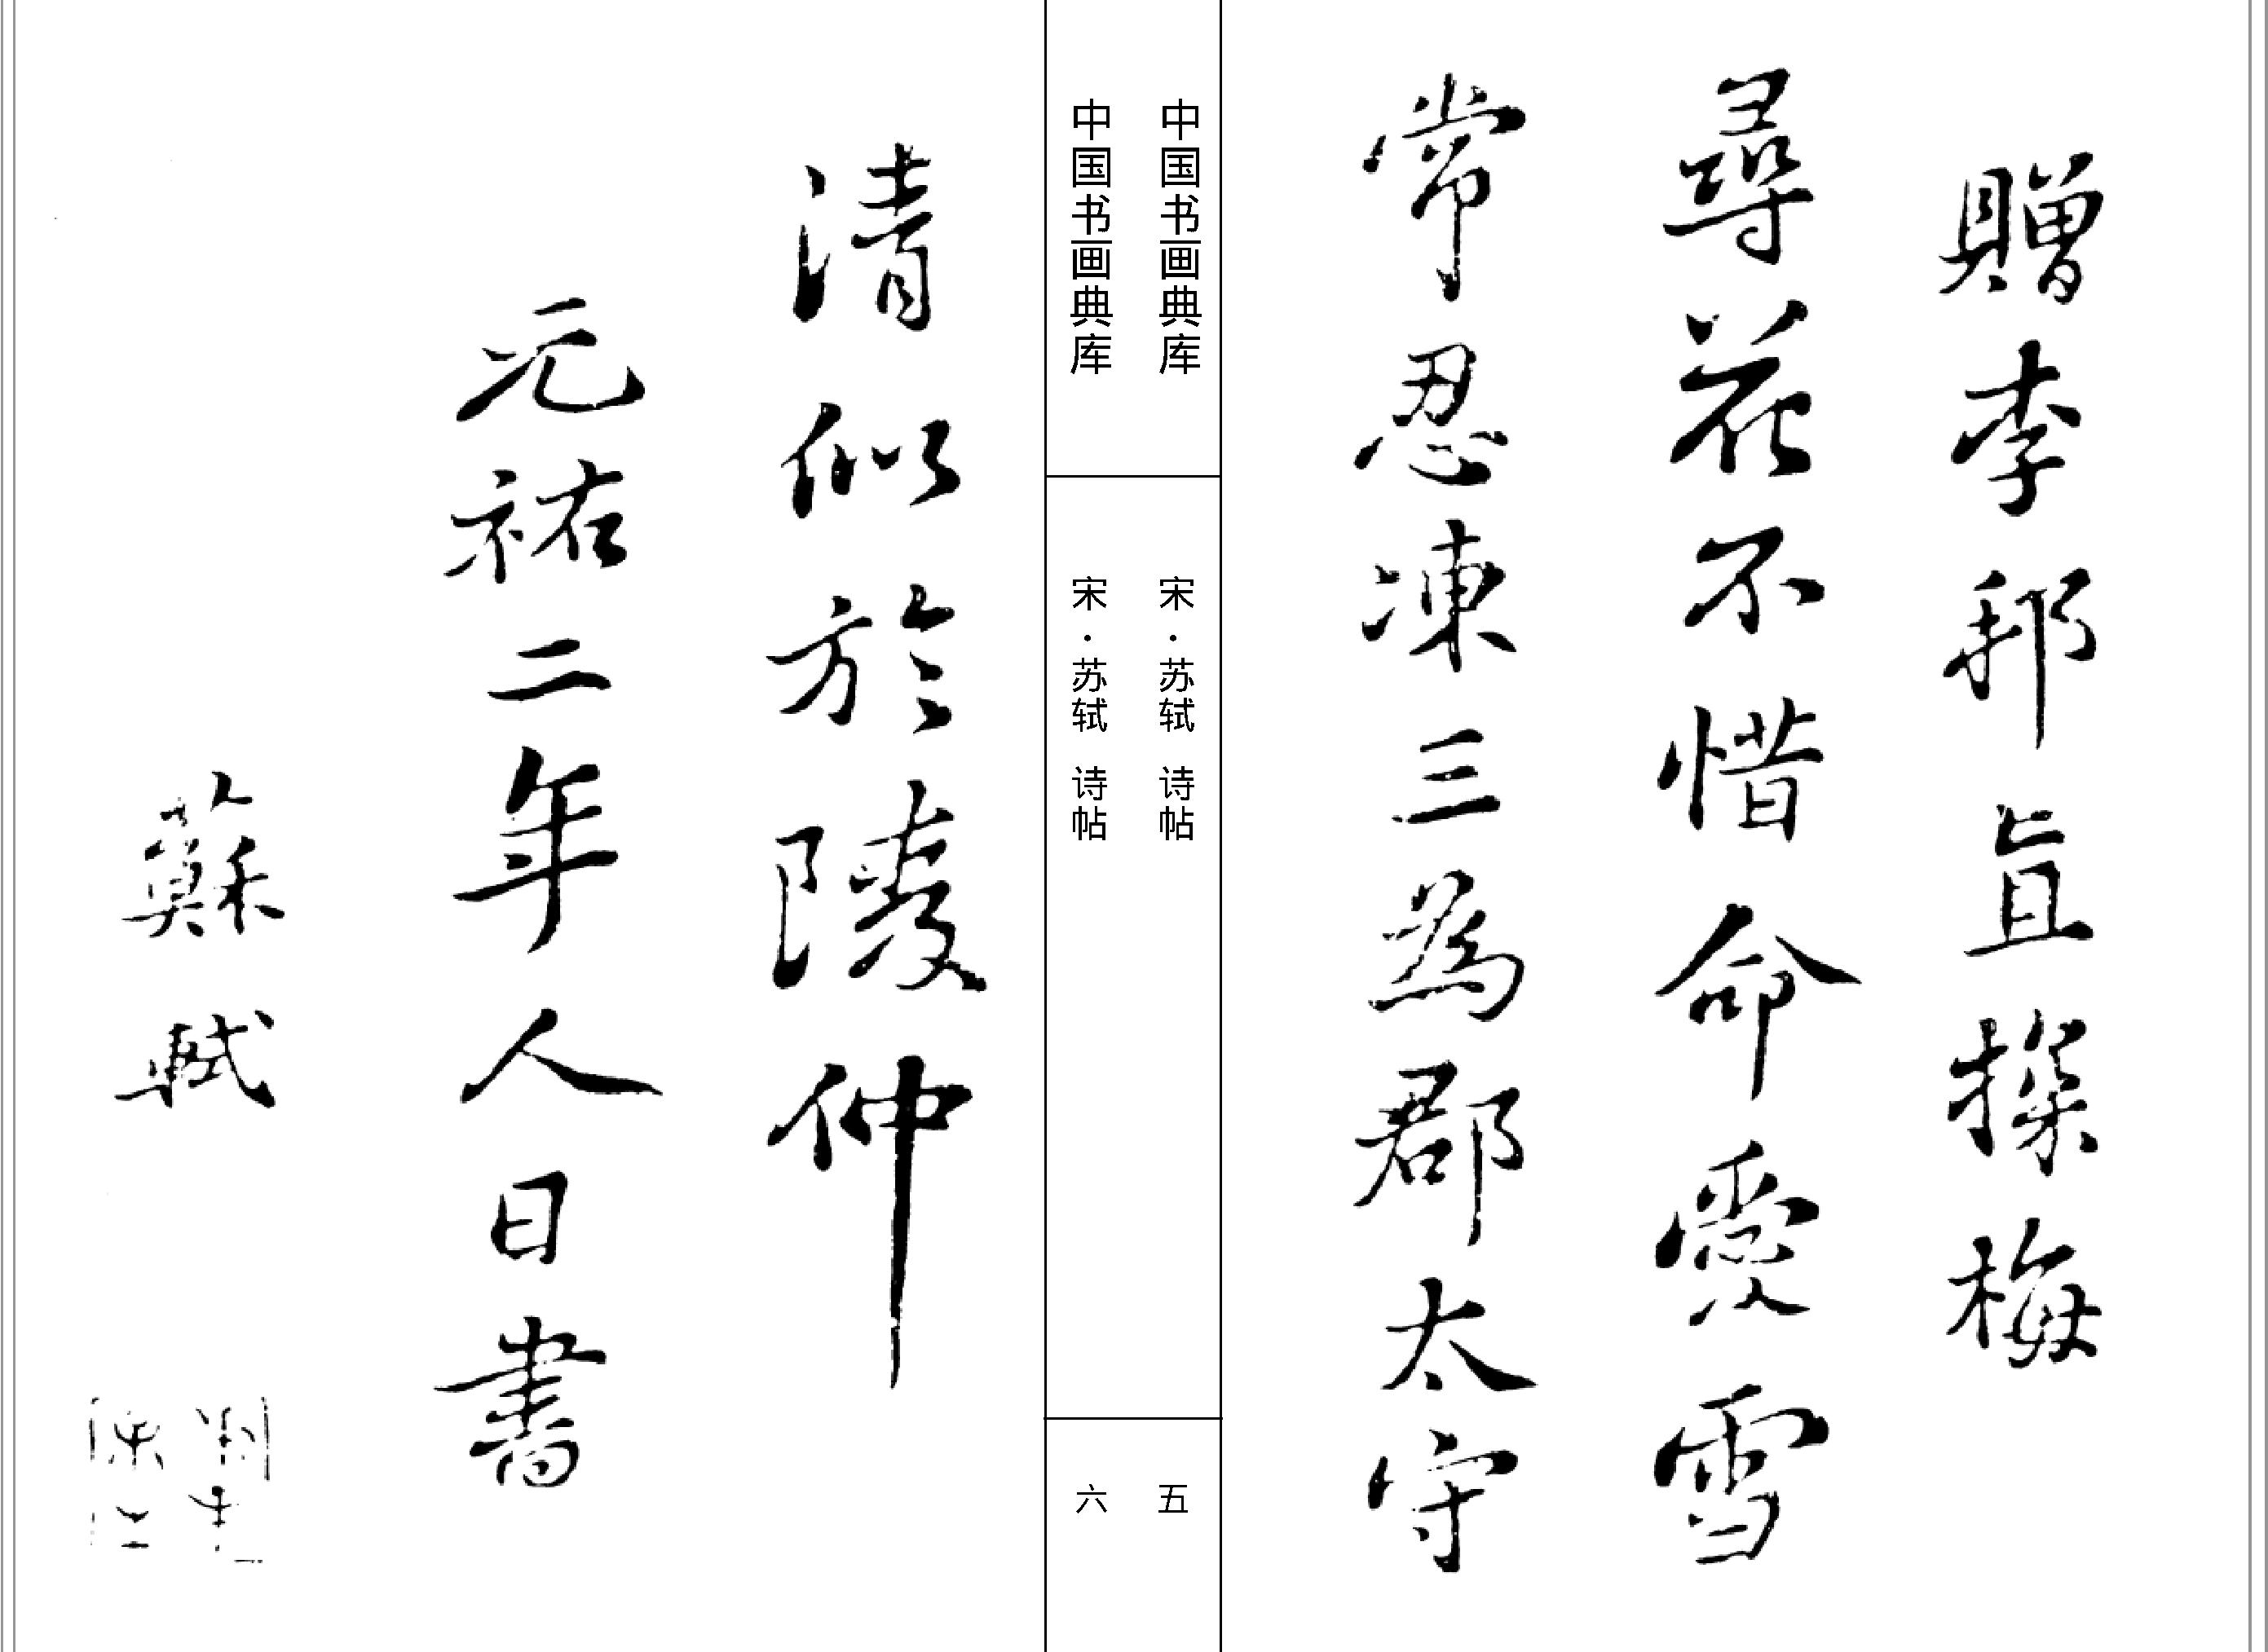 贈李邦直探梅
尋花不惜命愛雪
常忍凍三為郡太守
中国书画典库
宋·苏轼 诗帖
五
中国书画典库
宋·苏轼 诗帖
六
清似於陵仲
元祐二年人日書
蘇軾